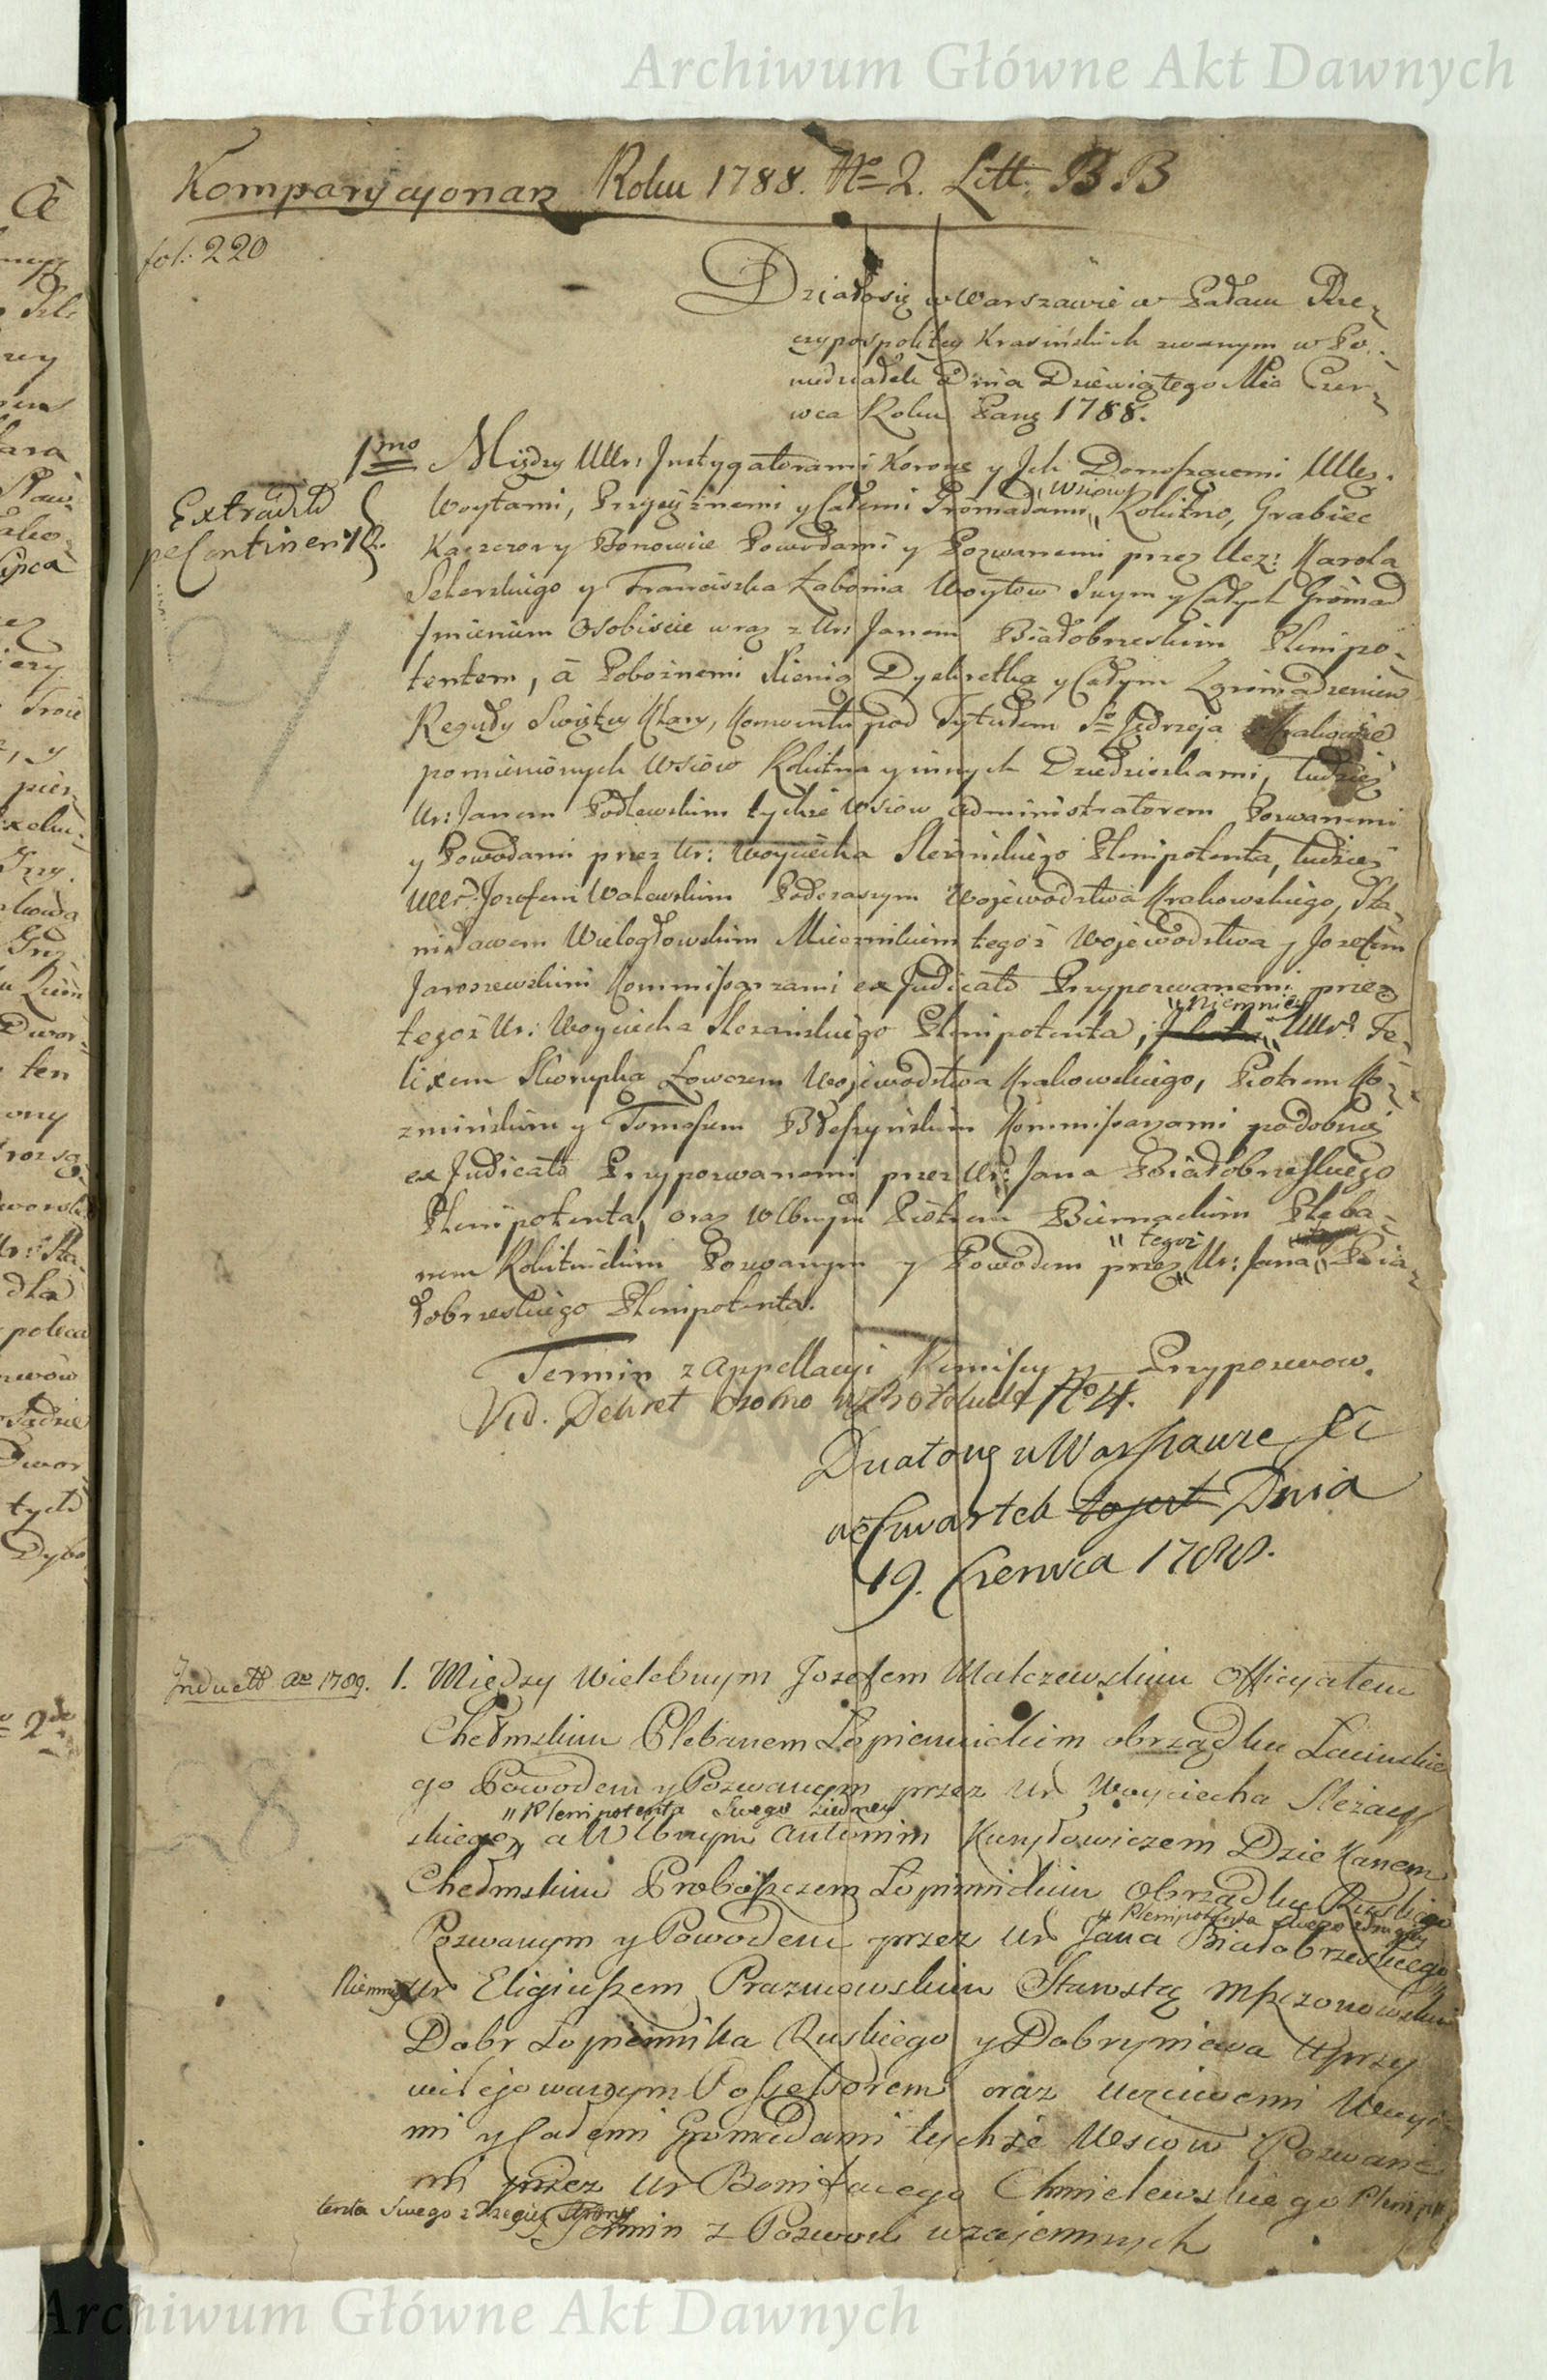 Archiwum Główne Akt Dawnych
Komparycyonarz Roku 1788. No 2. Litt. B.B
fol: 220
Działosię w Warszawie w Pałacu Rze-
czypospolitey Krasińskich zwanym w Po-
niedziałek Dnia Dziewiątego Mca Czer-
wca Roku Pang 1788.
1mo Między UUr: Instygatorami Korone y Jch Donoszącemi UUcz.
Extradd
per Continent
Woytami, Przysiężnemi y Całemi Gromadami
"Wsiow
Rokitno, Grabiec
Kaczorowy Bonowice Powodami y Pozwanemi przez Ucz: Karola
Sekerskiego y Franciszka Łabonia Woytow Swym y Całych Gromad
Jmieniem Osobiscie wraz z Ur: Janem Białobrzeskim Plenipo-
tentem, à Pobożnemi Xienią Dyskretką y Całym Zgromadzeniem
Reguły Swiętey Klary, Konwentu pod Tytułem So Jędrzeja Krakowie
pomienionych Wsiow Rokitna y innych Dziedziczkami, tudzież
Ur: Janem Podlewskim tychże Wsiow Administratorem Pozwanemi
y Powodami przez Ur: Woyciecha Slezańskiego Plenipotenta, tudzież
UUr: Jozefem Walewskim Podczaszym Wojewodztwa Krakowskiego, Sta-
nisławem Wielogłowskim Miecznikiem tegoż Wojewodztwa y Jozefem
Jaroszewskim Kommissarzami ex Judicato Przypozwanemi przez
tegoż Ur: Woyciecha Slezańskiego Plenipotenta,
"Niemniey
UUr: Fe-
lixem Skorupka Łowczem Wojewodztwa Krakowskiego, Piotrem Ko-
zmińskim y Tomaszem Błeszyńskim Kommissarzami podobnież
ex Judicato Przypozwanemi przez Ur: Jana Białobrzeskiego
Plenipotenta, oraz Wlbnym Piotrem Biernackim Pleba-
nem Rokitnickim Pozwanym y Powodem przez
" tegoż
Ur: Jana Bia-
łobrzeskiego Plenipotenta.
Termin z Appellacyi Remissy y Przypozwow.
Vid. Dekret osobno w Protokule No 4.
Działosię w Warszawie
w Czwartek to jest Dnia
19. Czerwca 1788.
Induct ao 1789.
1. Między Wielebnym Jozefem Malczewskim Officyałem
Chełmskim Plebanem Łopiennickim obrządku Łacinskie
go Powodem y Pozwanym przez Ur Woyciecha Slezań
" Plenipotenta Swego ziedney
skiego, a Wlbnym Antonim Kuryłowiczem Dziekanem
Chełmskim Proboszczem Łopiennickim Obrządku Ruskiego
" Plenipotenta Swego zdrugiey
Pozwanym y Powodem przez Ur Jana Białobrzeskiego
Niemniey Ur Eligiuszem Prazmowskim Starostą Mszczonowskim
Dobr Łopiennika Ruskiego y Dobryniewa Uprzy
wilejowanym Possessorem oraz Uczciwemi Woyt
mi y Całemi Gromadami tychże Wsiow Pozwane
mi przez Ur Bonifacego Chmielewskiego Plenipo
tenta Swego z Trzeciey Strony
Termin z Pozwow wzajemnych
Archiwum Główne Akt Dawnych